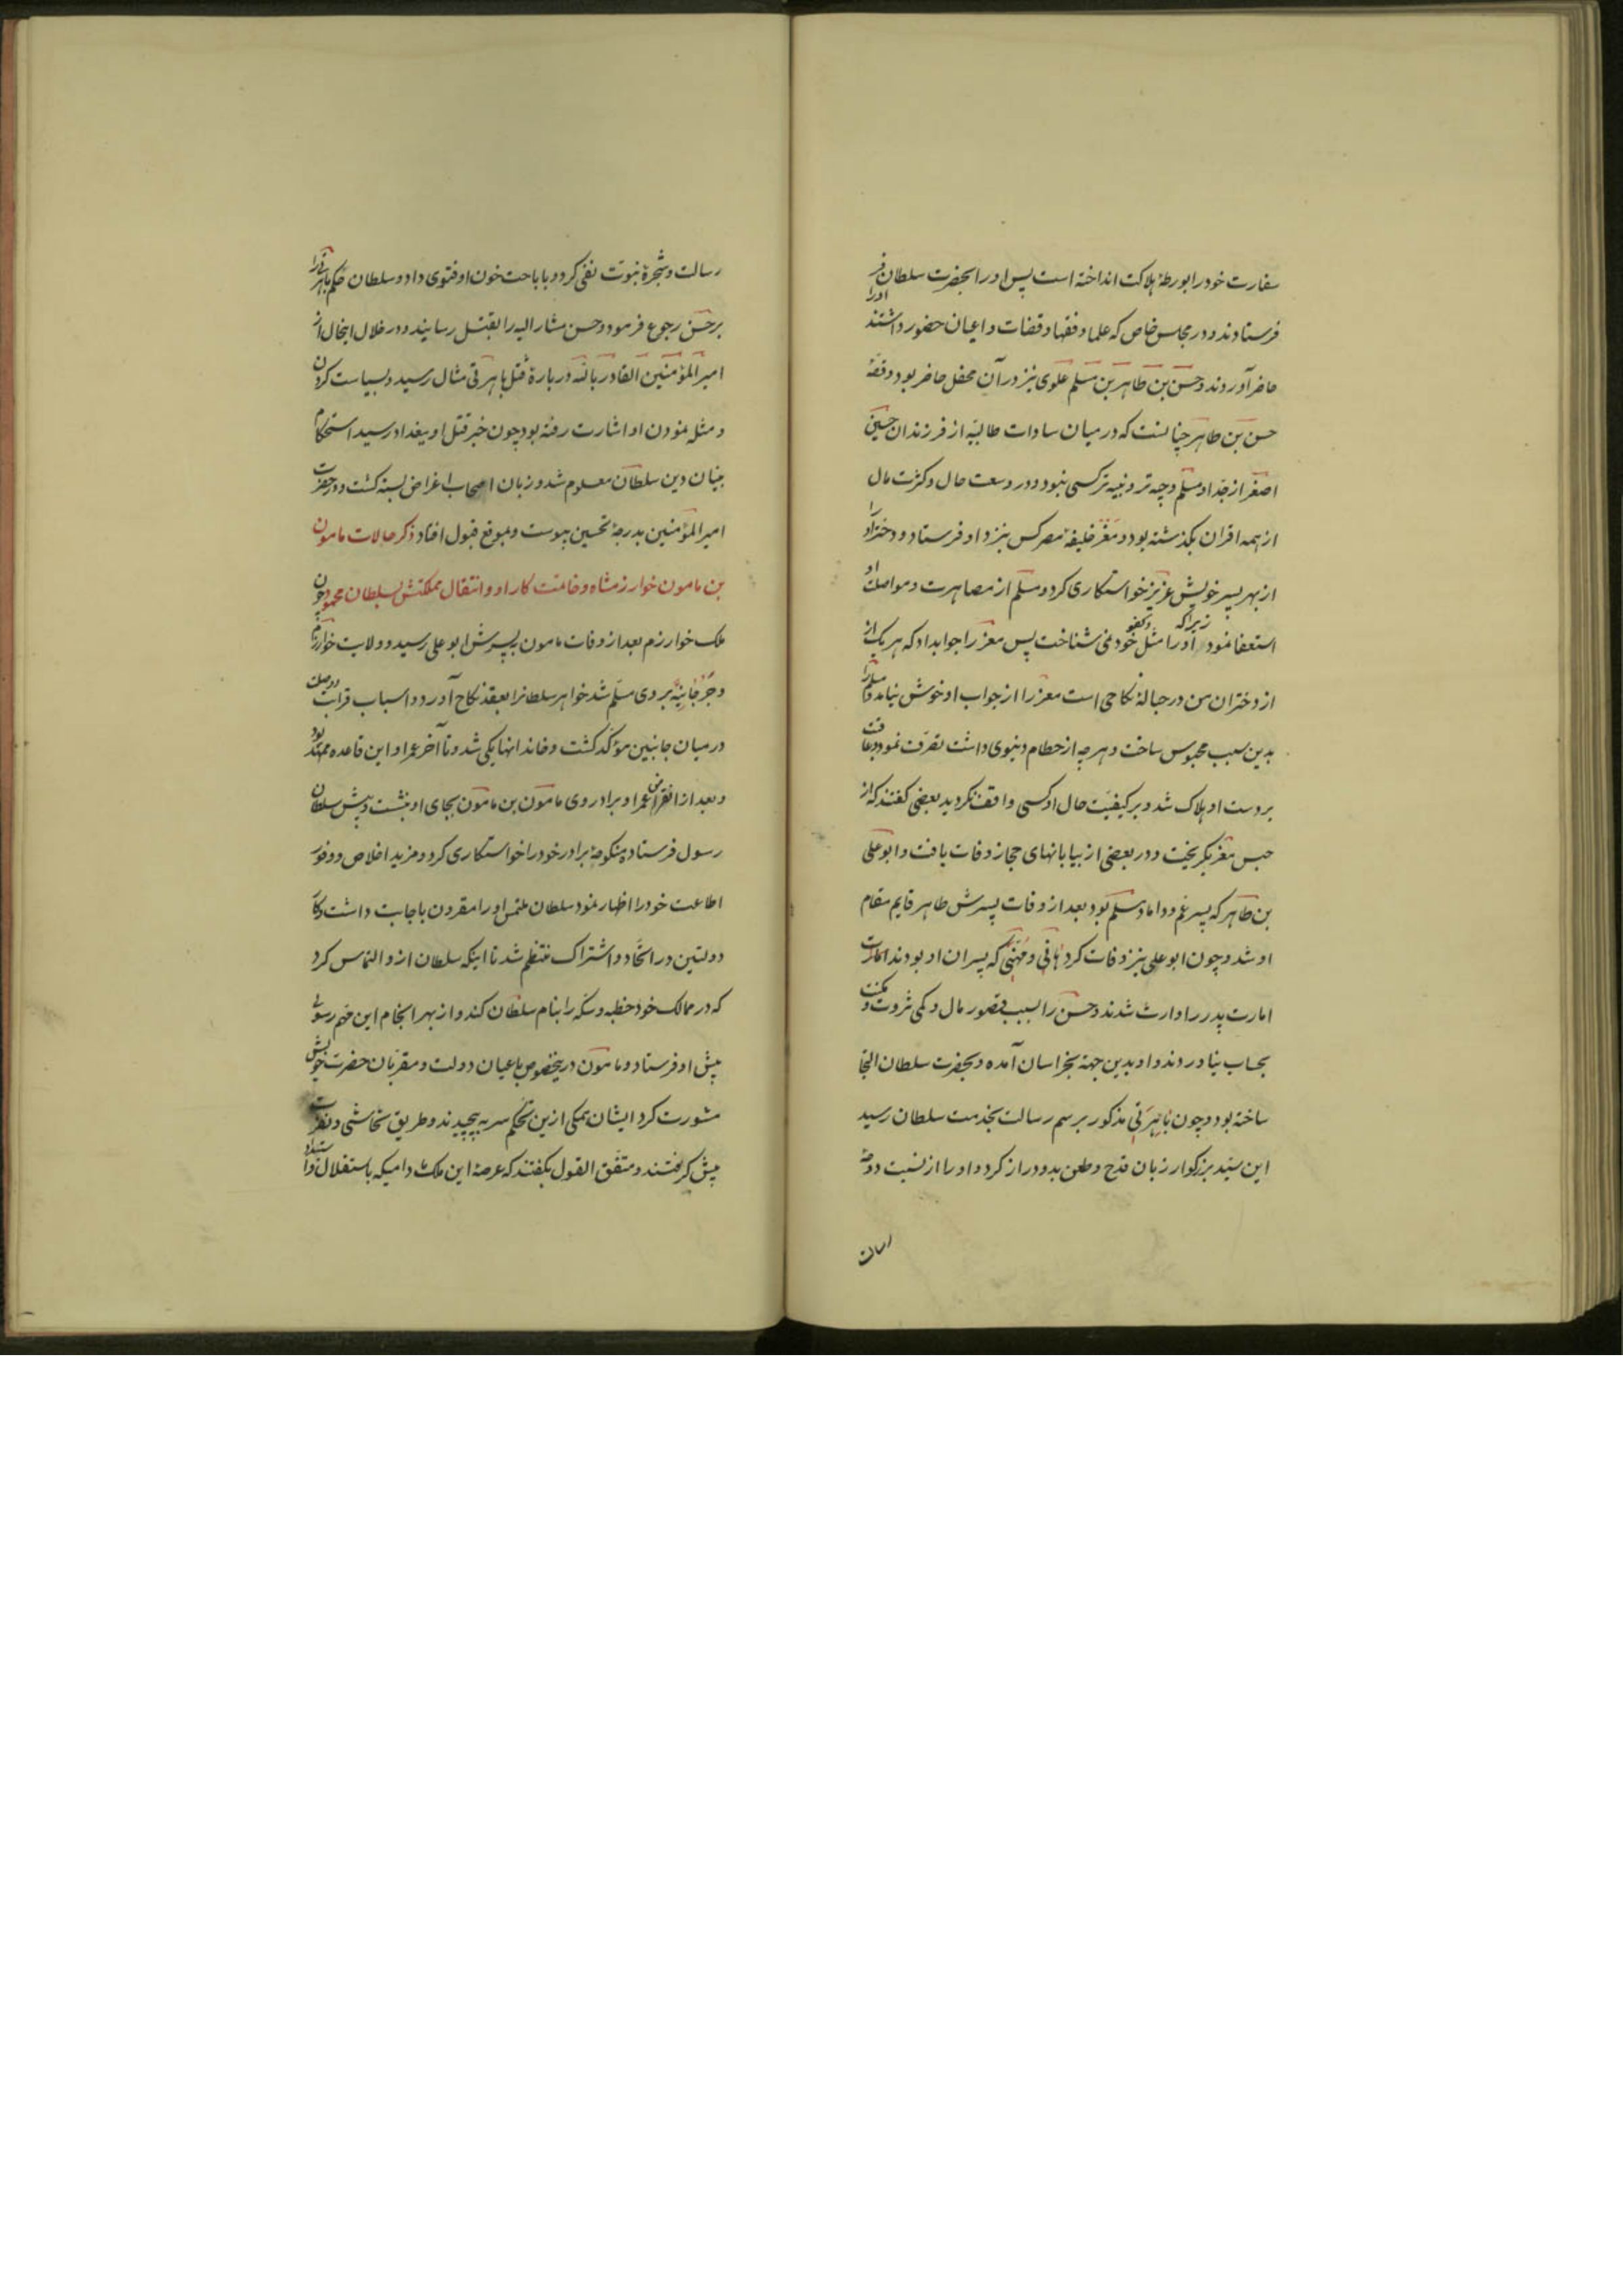 سفارت خود را بورطهٔ هلاکت انداخته است پس او را بحضرت سلطان
فرستادند و در مجلس خاص که علما و فقها و قضات و اعیان حضور داشتند او را
حاضر آوردند و حسن بن طاهر بن مسلم علوی نیز در آن محفل حاضر بود و قصهٔ
حسن بن طاهر چنانست که در میان سادات طالبیّه از فرزندان حسین
اصغر از جدّ او مسلم وجیه تر و نبیه تر کسی نبود و در وسعت حال و کثرت مال
از همه اقران بگذشته بود و معز خلیفهٔ مصر کس بنزد او فرستاد و دختر او را
از بهر پسر خویش عزیز خواستکاری کرد و مسلم از مصاهرت و مواصلت او
استعفا نمود زیرا که او را مثل و کفو خود نمی شناخت پس معز را جواب داد که هر یک از
از دختران من در حبالهٔ نکاحی است معز را از جواب او خوش نیامد و مسلم را
بدین سبب محبوس ساخت و هر چه از حطام دنیوی داشت تصرّف نمود و عاقبت
بر دست او هلاک شد و بر کیفیّت حال او کسی واقف نکردید بعضی گفتند که از
حبس معز بگریخت و در بعضی از بیابانهای حجاز وفات یافت و ابو علی
بن طاهر که پسر عم و داماد مسلم بود بعد از وفات پسرش طاهر قایم مقام
او شد و چون ابو علی نیز وفات کرد هانی و مهنّی که پسران او بودند
امارت پدر را وارث شدند و حسن را بسبب قصور مال و کمی ثروت و مکنت
بحساب نیاوردند و او بدین جهة بخراسان آمده و بحضرت سلطان التجا
ساخته بود و چون باهرتی مذکور برسم رسالت بخدمت سلطان رسید
این سیّد بزرکوار زبان قدح و طعن بدو دراز کرد و او را از نسبت دوحهٔ
رسالت و شجرهٔ نبوّت نفی کرد و باباحت خون او فتوی داد و سلطان حکم باهرتی را
بر حسن رجوع فرمود و حسن مشار الیه را بقتل رسانید و در خلال اینحال از
امیر المؤمنین القادر بالله در بارهٔ قتل باهرتی مثال رسید و بسیاست کردن
و مثله نمودن او اشارت رفته بود چون خبر قتل او ببغداد رسید استحکام
بنیان دین سلطان معلوم شد و زبان اصحاب اغراض بسته کشت و در حضرت
امیر المؤمنین بدرجهٔ تحسین پیوست و بموقع قبول افتاد ذکر حالات مامون
بن مامون خوارزمشاه و خاتمت کار او و انتقال مملکتش بسلطان محمود چون
ملک خوارزم بعد از وفات مامون بپسرش ابو علی رسید و ولایت خوارزم
و جرجانیّه بر وی مسلّم شد خواهر سلطانرا بعقد نکاح آورد و اسباب قرابت و وصلت
در میان جانبین مؤکّد کشت و خاندانها یکی شد و تا آخر عمر او این قاعده ممهّد بود
و بعد از انقراض عمر او برادر وی مامون بن مامون بجای او بنشست و پیش سلطان
رسول فرستاده منکوحهٔ برادر خود را خواستکاری کرد و مزید اخلاص و وفور
اطاعت خود را اظهار نمود سلطان ملتمس او را مقرون باجابت داشت و کار
دولتین در اتّحاد و اشتراک منتظم شد تا اینکه سلطان از و التماس کرد
که در ممالک خود خطبه و سکّه را بنام سلطان کند و از بهر انجام این مهم رسولی
پیش او فرستاد و مامون درینخصوص باعیان دولت و مقرّبان حضرت خویش
مشورت کرد ایشان همکی ازین تحکّم سر به پیچیدند و طریق تحاشی و نفرت
پیش کرفتند و متفّق القول بکفتند که عرصهٔ این ملک مادامیکه باستقلال و استبداد